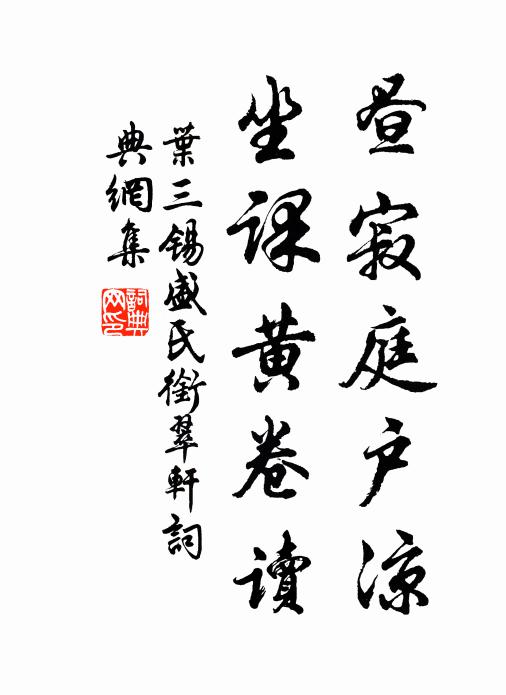 昼寂庭户凉
坐課黄卷讀
葉三錫盛氏銜翠軒詞
典網集
詞典网印